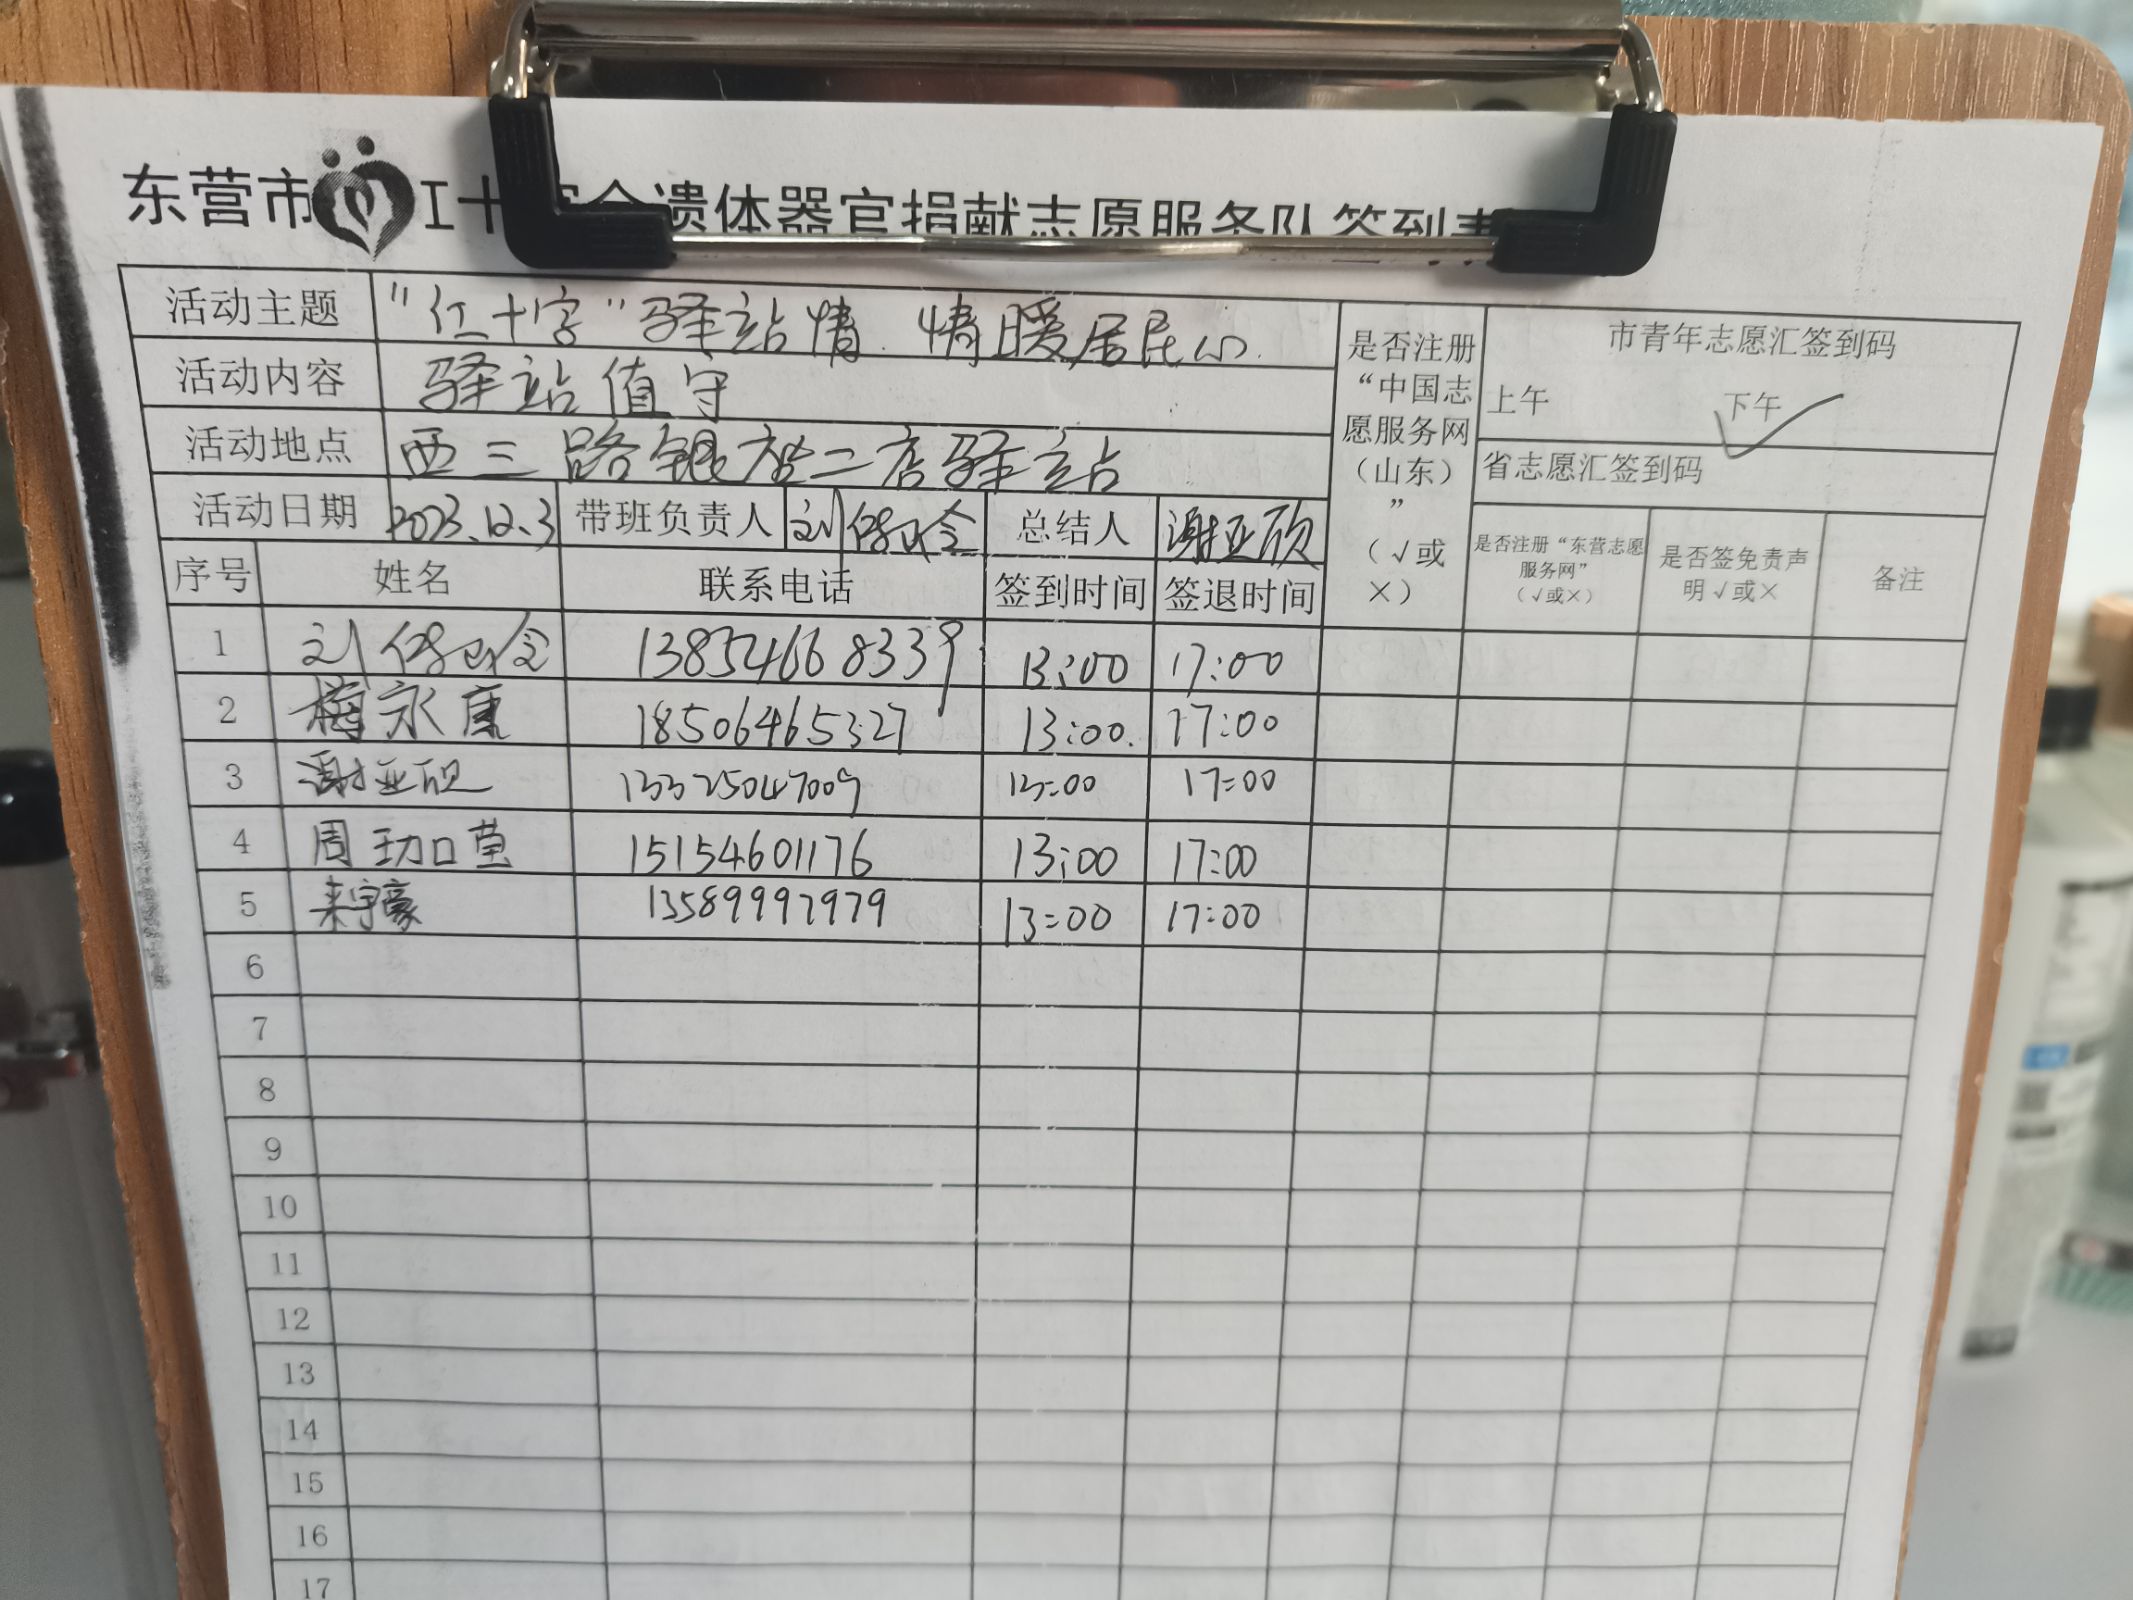 东营市 遗体器官捐献志愿服务队签到表
活动主题 "红十字"驿站情 情暖居民心
活动内容 驿站值守
活动地点 西三路银座二店驿站
活动日期 2023.12.3 带班负责人 刘 总结人 谢亚欣
是否注册“中国志愿服务网（山东）”（√或×）
市青年志愿汇签到码
上午 下午 ✓
省志愿汇签到码
是否注册“东营志愿服务网”（√或×） 是否签免责声明√或× 备注
序号 姓名 联系电话 签到时间 签退时间
1 刘 13854668339 13:00 17:00
2 永康 18506465327 13:00 17:00
3 谢亚欣 13325047009 13:00 17:00
4 周 15154601176 13:00 17:00
5 来宇豪 13589997979 13:00 17:00
6
7
8
9
10
11
12
13
14
15
16
17